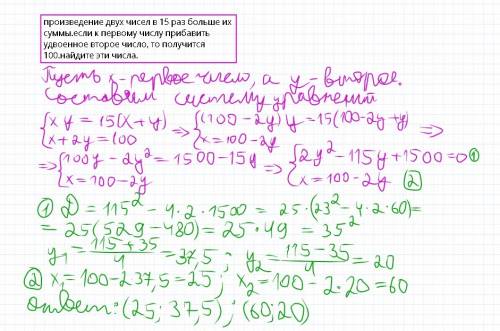 произведение двух чисел в 15 раз больше их
суммы.если к первому числу прибавить
удвоенное второе число, то получится
100.найдите эти числа.
Пусть x-первое число, а y-второе.
Составим систему уравнений
{xy = 15(x+y) x+2y=100 => {(100-2y)y=15(100-2y+y) x=100-2y =>
=> {100y-2y²=1500-15y x=100-2y => {2y²-115y+1500=0 ① x=100-2y ②
① D = 115² - 4·2·1500 = 25·(23²-4·2·60)=
= 25(529-480) = 25·49 = 35²
y₁ = (115+35)/4 = 37,5 ; y₂ = (115-35)/4 = 20
② x₁ = 100-2·37,5=25; x₂ = 100-2·20=60
ответ: (25; 37,5); (60;20)